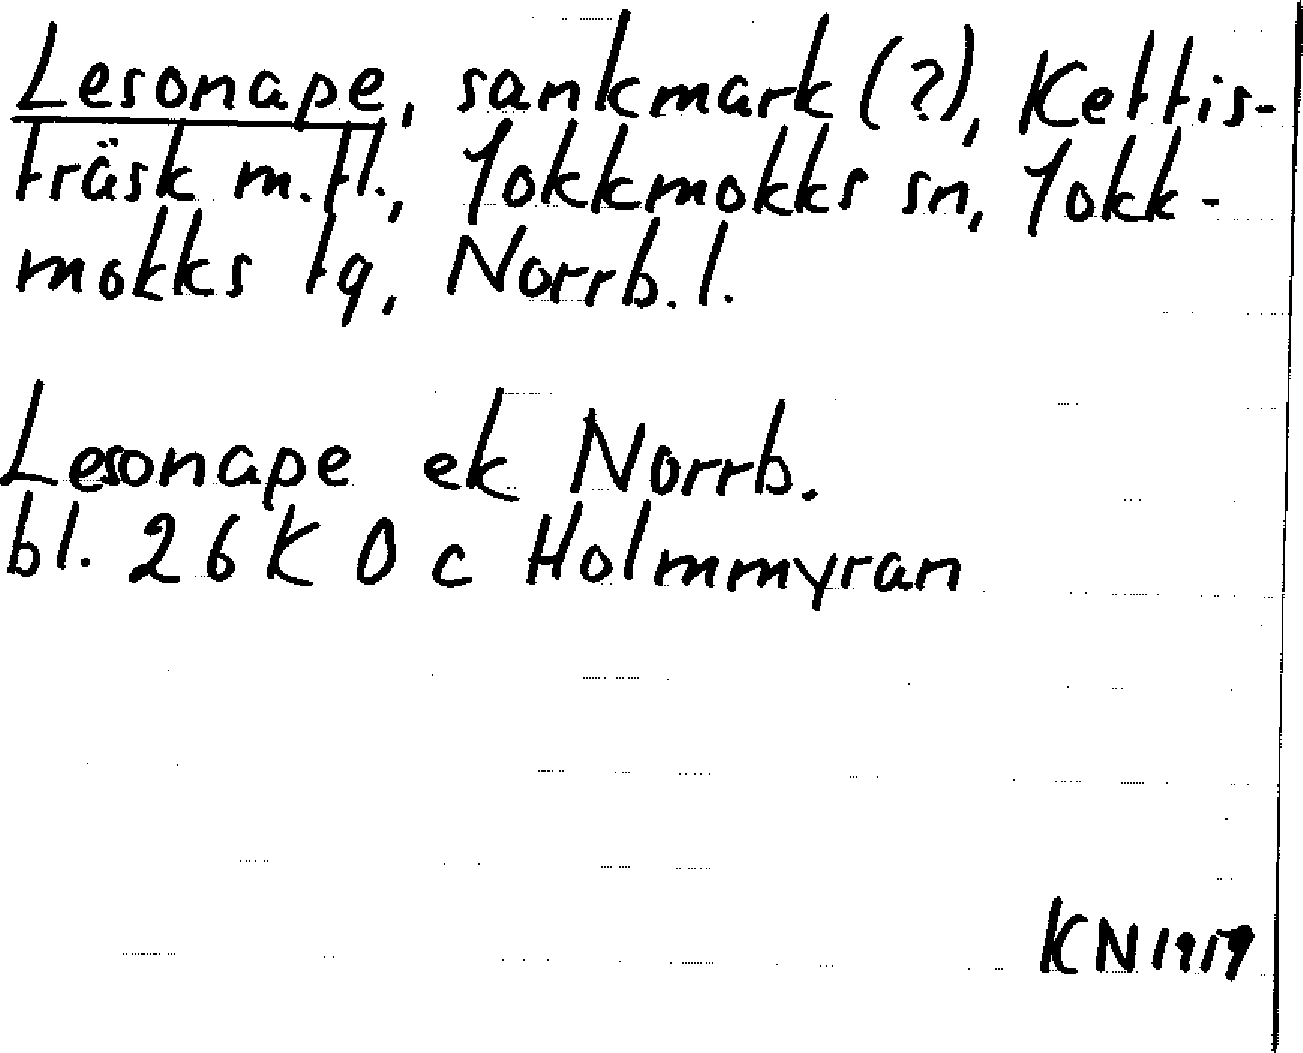 Lesonape, sankmark (?), Kettis-
träsk m.fl., Jokkmokks sn, Jokk-
mokks tg, Norrb. l.
Lesonape ek Norrb.
bl. 26 K 0 c Holmmyran
KN